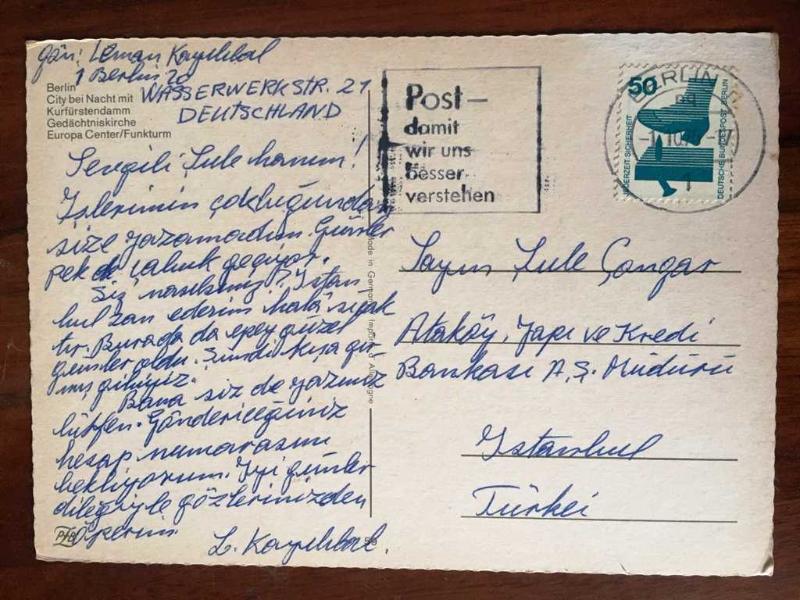 Gön: Leman Kayıhbal
1 Berlin 20
WASSERWERKSTR. 21
DEUTSCHLAND
Berlin
City bei Nacht mit
Kurfürstendamm
Gedächtniskirche
Europa Center/Funkturm
Sevgili Şule hanım!
İşlerimin çokluğundan
size yazamadım. Günler
pek de çabuk geçiyor.
Siz nasılsınız? İstan
bul zan ederim halâ sıcak
tır. Burada da epey güzel
günler oldu. Şimdi kışa gir
miş gibiyiz.
Bana siz de yazınız
lütfen. Göndericeğiniz
hesap numarasını
bekliyorum. İyi günler
dileğiyle gözlerinizden
öperim
L. Kayıhbal.
Made in Germany
Post-
damit
wir uns
besser
verstehen
BERLIN
50
JEDERZEIT SICHERHEIT
DEUTSCHE BUNDESPOST BERLIN
1
Sayın Şule Çongar
Ataköy, Yapı ve Kredi
Bankası A.Ş. Müdürü
İstanbul
Türkei